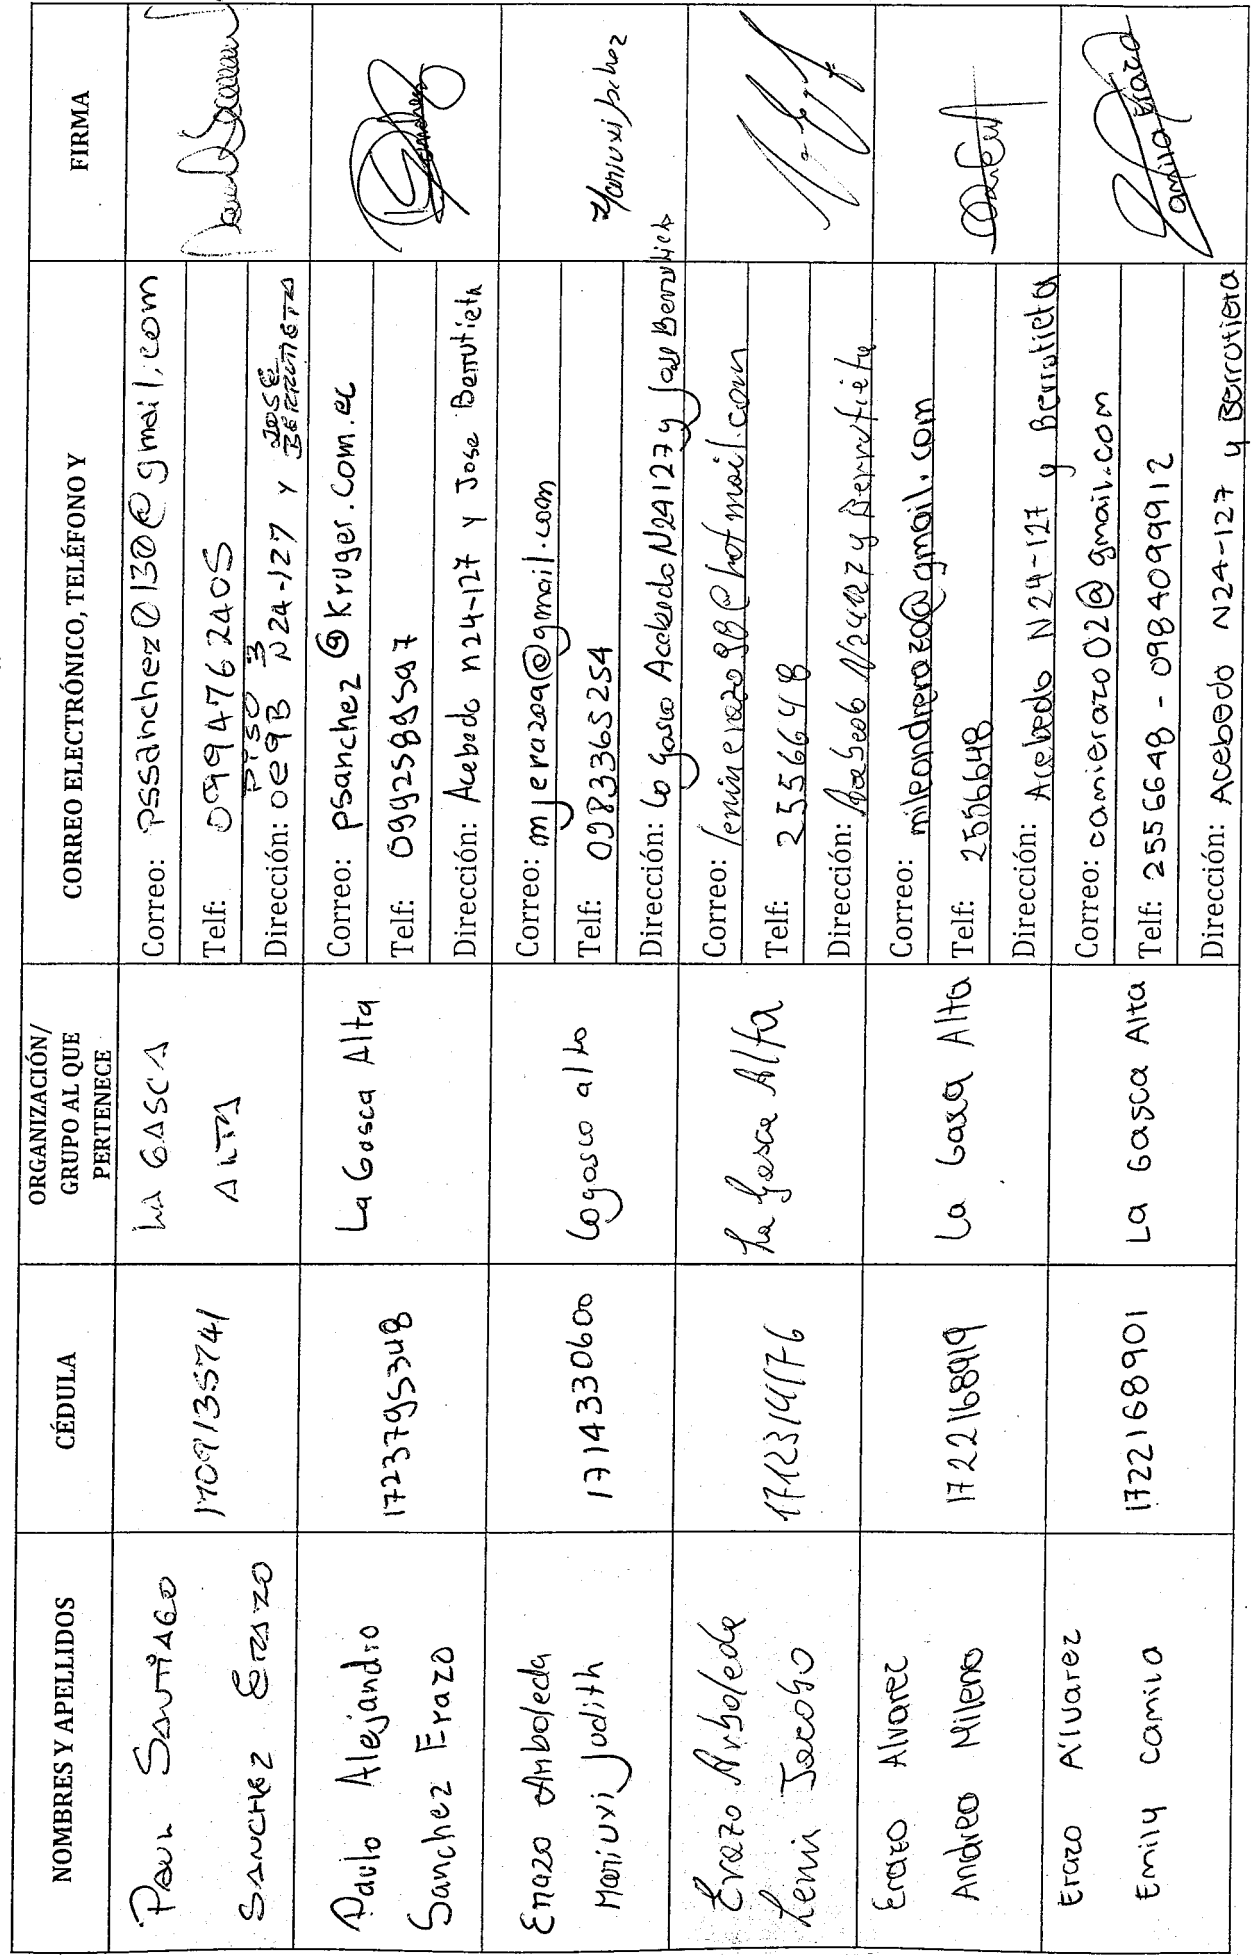 NOMBRES Y APELLIDOS
CÉDULA
ORGANIZACIÓN/
GRUPO AL QUE
PERTENECE
CORREO ELECTRÓNICO, TELÉFONO Y
FIRMA
Paul Santiago
Sanchez Erazo
1709135741
La Gasca
Alta
Correo: pssanchez0130@gmail.com
Telf: 0994762405
Dirección: Oe9B N24-127 y José Berrutieta
Piso 3
Paulo Alejandro
Sanchez Erazo
1723795348
La Gasca Alta
Correo: psanchez@Kruger.com.ec
Telf: 0992589597
Dirección: Acebedo n24-127 y Jose Berrutieta
Erazo Arboleda
Mariuxi Judith
1714330600
La gasca alta
Correo: mjerazoa@gmail.com
Telf: 0983365254
Dirección: La Gasca Acebedo N24127 y Jose Berrutieta
Erazo Arboleda
Lenin Jacobo
1712314176
La Gasca Alta
Correo: leninerazo9B@hotmail.com
Telf: 2556648
Dirección: Acebedo N24127 y Berrutieta
Erazo Alvarez
Andrea Milena
1722168919
La Gasca Alta
Correo: mileandrerazo@gmail.com
Telf: 2556648
Dirección: Acebedo N24-127 y Berrutieta
Erazo Alvarez
Emily Camila
1722168901
La Gasca Alta
Correo: camierazo02@gmail.com
Telf: 2556648 - 0984099912
Dirección: Acebedo N24-127 y Berrutieta
Camila Erazo